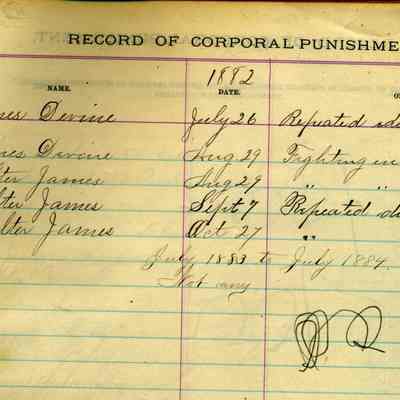 RECORD OF CORPORAL PUNISHME
1882
NAME. DATE. O
nes Devine July 26 Repeated di
nes Devine Aug 29 Fighting in
ter James Aug 29 " "
lter James Sept 7 Repeated di
lter James Oct 27 "
July 1883 to July 1884.
Not any